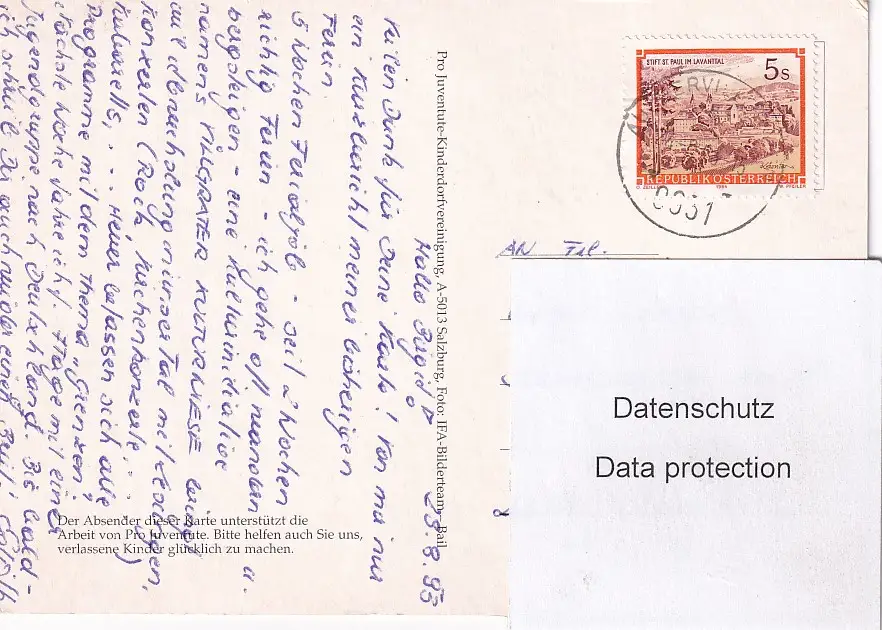 23.8.93
Hallo
Vielen Dank für Deine Karte! Von mir nur
ein Kurzbericht meiner bisherigen
Ferien.
5 Wochen Ferialjob - seit 2 Wochen
richtig Ferien - ich gehe oft wandern u.
bergsteigen - eine Kulturinitiative
namens KULTURWIESE bringt
mit Abwechslung in unser Tal mit Lesungen,
Konzerten (Rock, Kirchenkonzerte ...)
Kabaretts, ... Heuer befassen sich alle
Programme mit dem Thema „Grenzen“,
Nächste Woche fahre ich 4 Tage mit einer
Jugendgruppe nach Deutschland. Bis bald -
ich schreib Dir auch wieder einen Brief!
Pro Juventute-Kinderdorfvereinigung, A-5013 Salzburg, Foto: IFA-Bilderteam - Bail
Der Absender dieser Karte unterstützt die
Arbeit von Pro Juventute. Bitte helfen auch Sie uns,
verlassene Kinder glücklich zu machen.
STIFT ST. PAUL IM LAVANTTAL
5 S
REPUBLIK ÖSTERREICH
AN Frl.
Datenschutz
Data protection